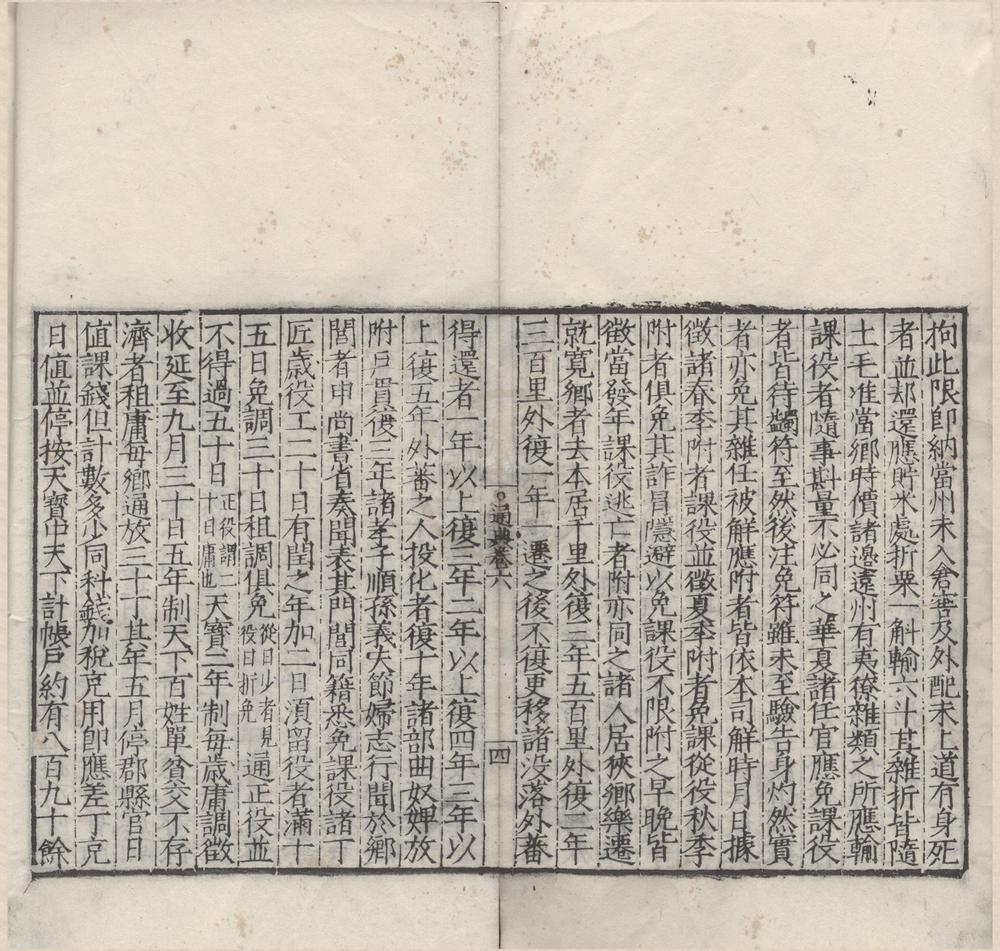 拘此限即納當州未入倉窖及外配未上道有身死
者並却還應貯米處折粟一斛輸六斗其雜折皆隨
土毛准當鄉時價諸邊遠州有夷獠雜類之所應輸
課役者隨事斟量不必同之華夏諸任官應免課役
者皆待蠲符至然後注免符雖未至驗告身灼然實
者亦免其雜任被解應附者皆依本司解時月日據
徵諸春季附者課役並徵夏季附者免課從役秋季
附者俱免其詐冒隱避以免課役不限附之早晚皆
徵當發年課役逃亡者附亦同之諸人居狹鄉樂遷
就寬鄉者去本居千里外復三年五百里外復二年
三百里外復一年一遷之後不復更移諸没落外蕃
通典卷六
四
得還者一年以上復三年二年以上復四年三年以
上復五年外蕃之人投化者復十年諸部曲奴婢放
附戶貫復三年諸孝子順孫義夫節婦志行聞於鄉
閭者申尚書省奏聞表其門閭同籍悉免課役諸丁
匠歲役工二十日有閏之年加二日須留役者滿十
五日免調三十日租調俱免從日少者見役日折免通正役並
不得過五十日正役謂二十日庸也天寶三年制每歲庸調徵
收延至九月三十日五年制天下百姓單貧交不存
濟者租庸每鄉通放三十丁其年五月停郡縣官日
值課錢但計數多少同料錢加稅充用即應差丁充
日值並停按天寶中天下計帳戶約有八百九十餘